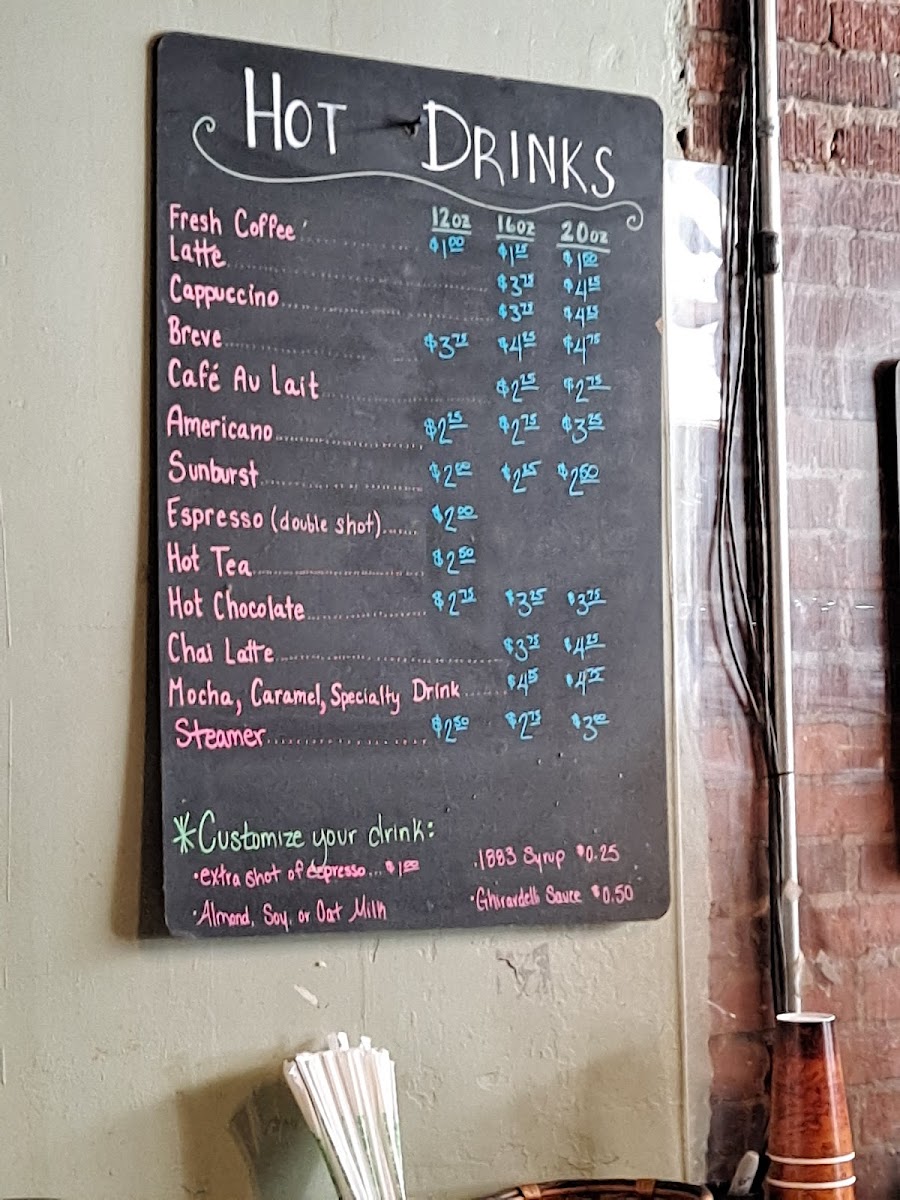 HOT DRINKS
12oz 16oz 20oz
Fresh Coffee $1.00 $1.25
Latte $3.75 $4.25
Cappuccino $3.75 $4.25
Breve $3.75 $4.25 $4.75
Café Au Lait $2.25 $2.75
Americano $2.25 $2.75 $3.25
Sunburst $2.00 $2.25 $2.50
Espresso (double shot) $2.00
Hot Tea $2.50
Hot Chocolate $2.75 $3.25 $3.75
Chai Latte $3.75 $4.25
Mocha, Caramel, Specialty Drink $4.25 $4.75
Steamer $2.50 $2.75 $3.00
*Customize your drink:
·extra shot of espresso... $1.00
·1883 Syrup $0.25
·Almond, Soy, or Oat Milk
·Ghirardelli Sauce $0.50